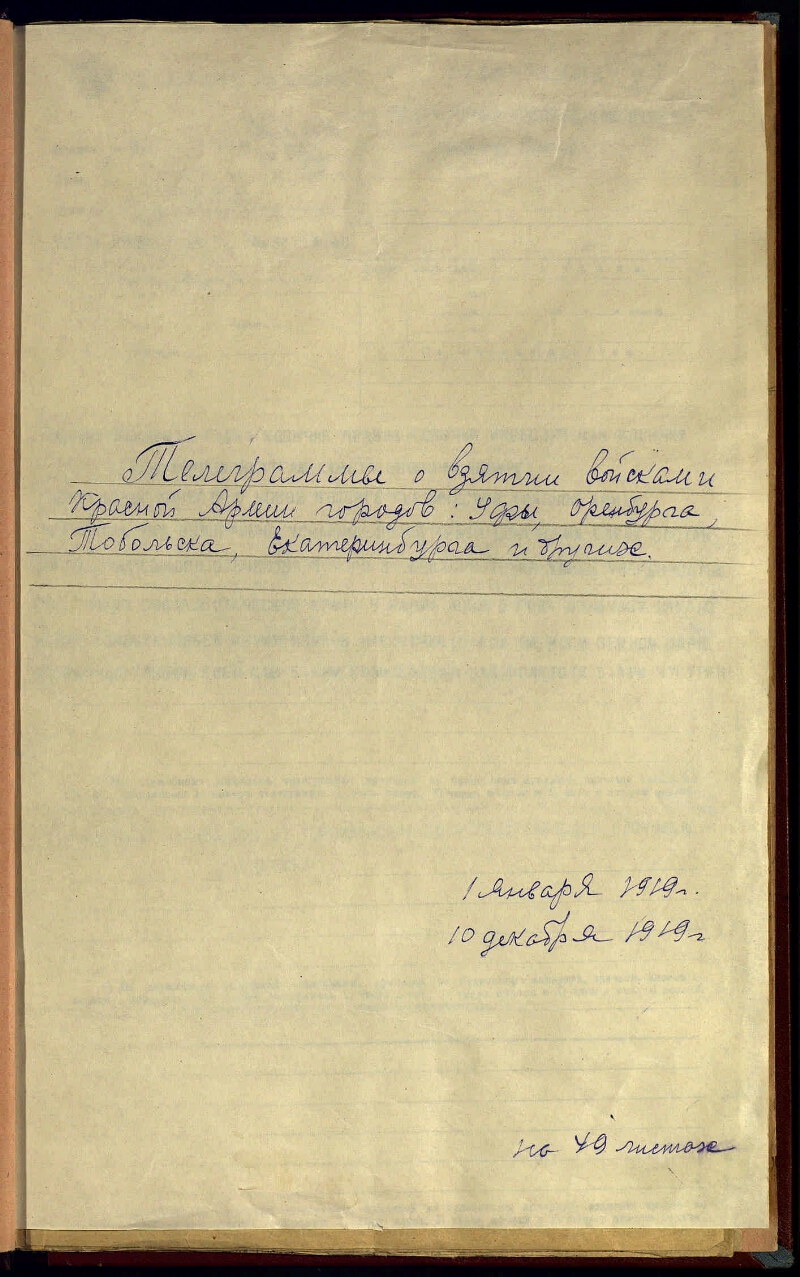 Телеграммы о взятии войсками
Красной Армии городов: Уфы, Оренбурга,
Тобольска, Екатеринбурга и других.
1 января 1919 г.
10 декабря 1919 г
на 49 листах